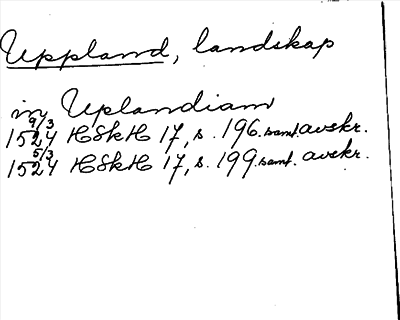 Uppland, landskap
in Uplandiam
1524 9/3 HSkH 17, s. 196. samt. avskr.
1524 5/3 HSkH 17, s. 199. samt. avskr.